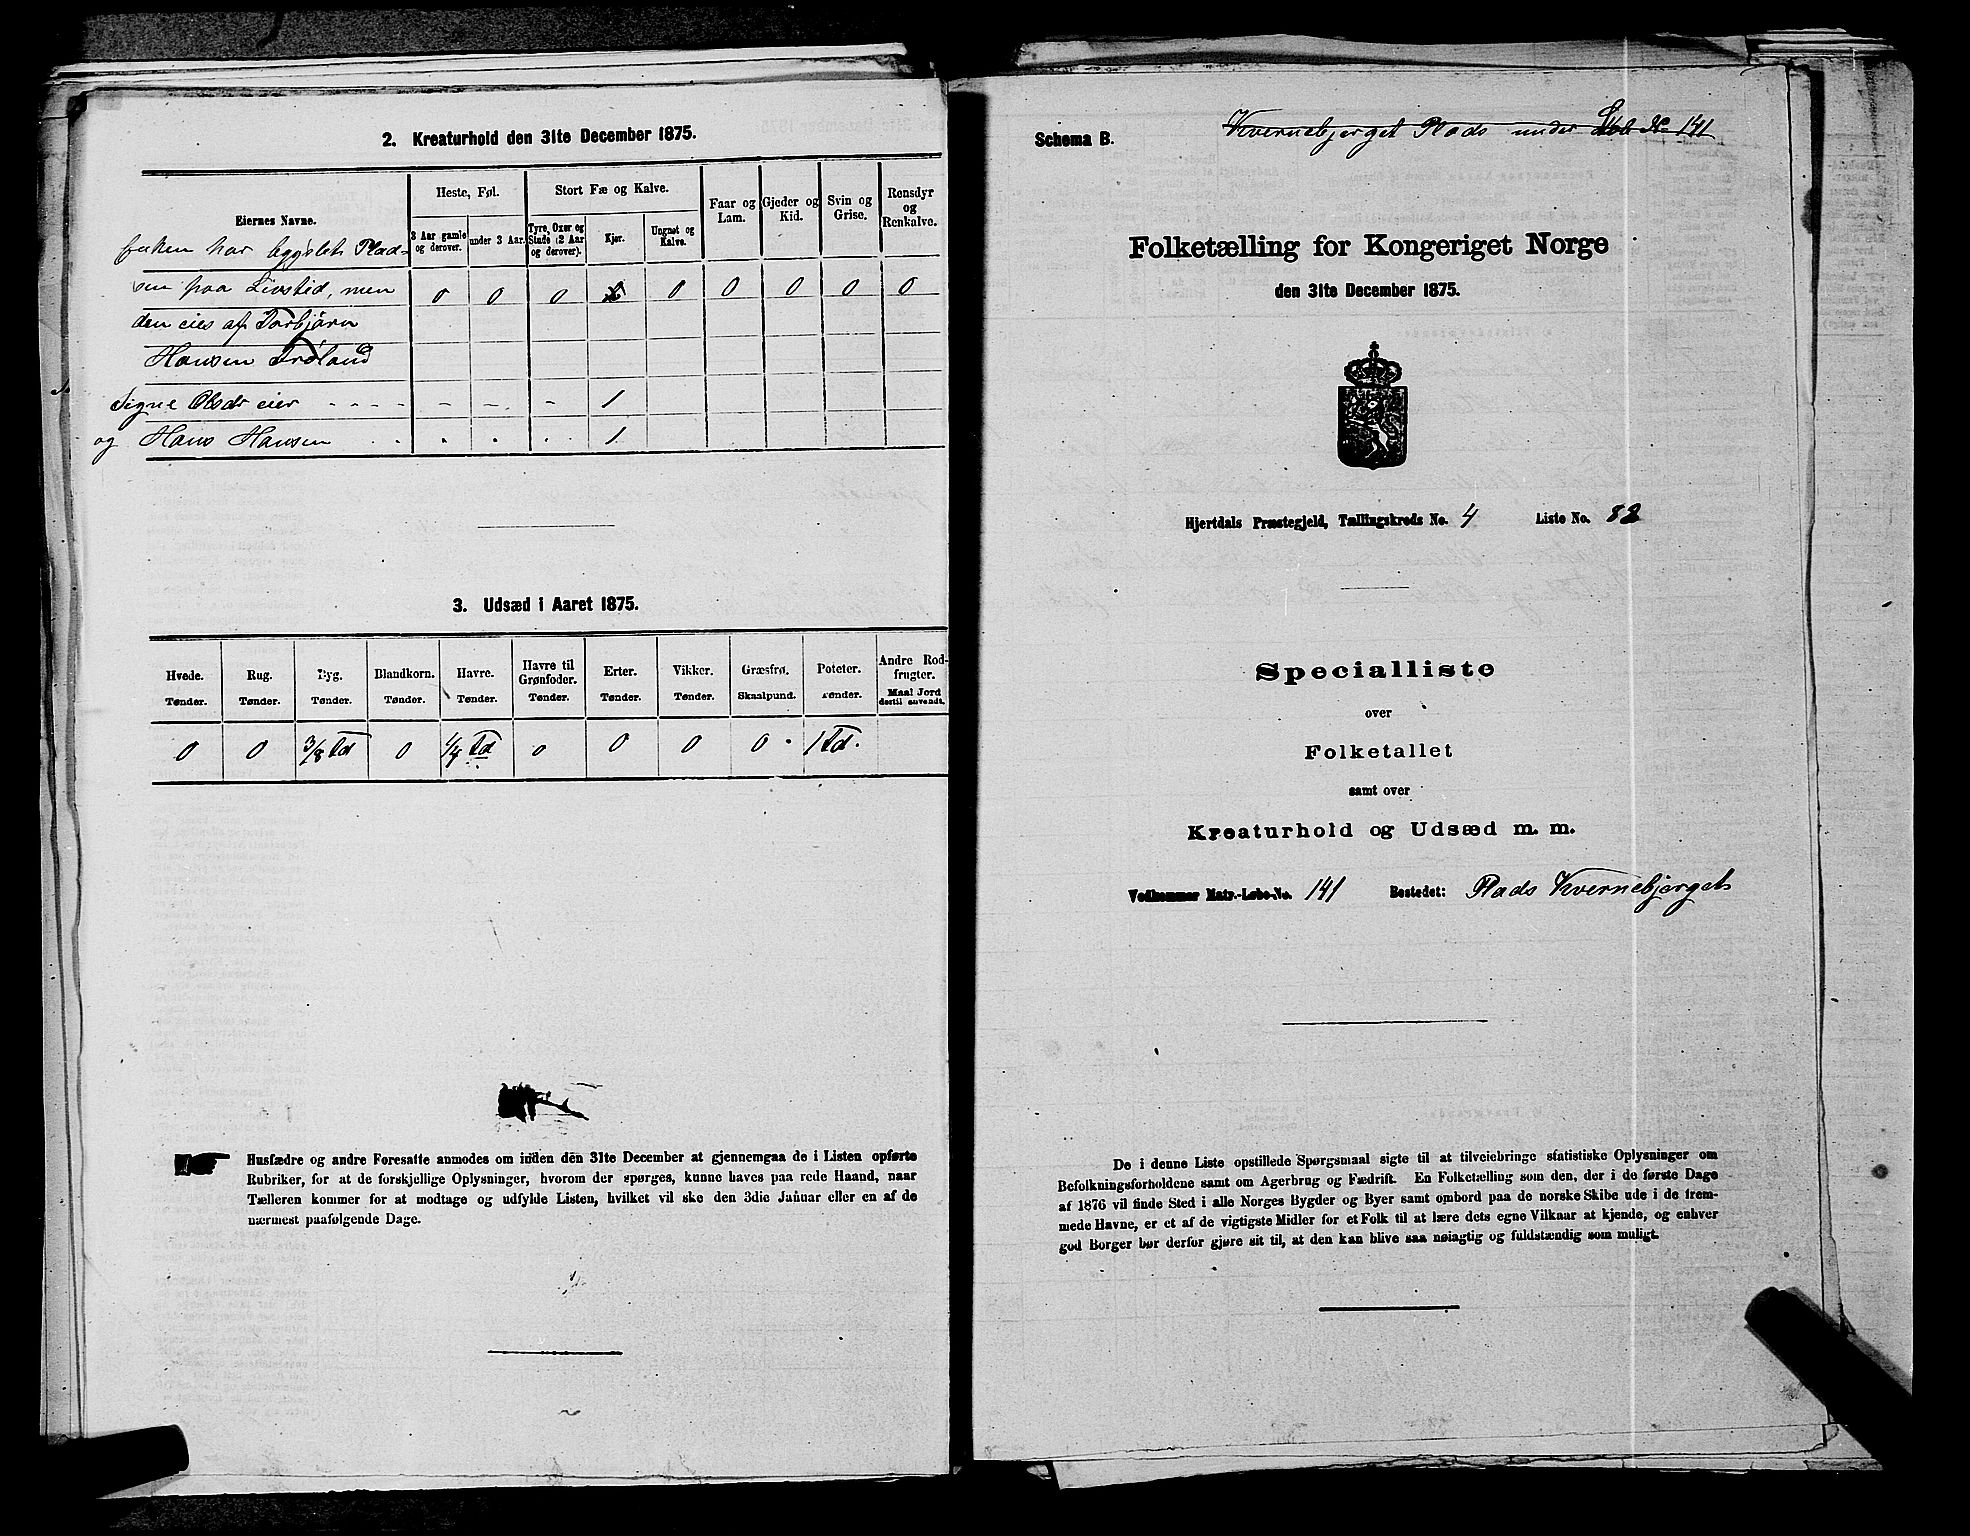 2. Kreaturhold den 31te December 1875.
Eiernes Navne.
Heste, Føl.
Stort Fæ og Kalve.
Faar og Lam.
Gjeder og Kid.
Svin og Grise.
Rensdyr og Renkalve.
3 Aar gamle og derover.
under 3 Aar.
Tyre, Oxer og Stude (2 Aar og derover).
Kjør.
Ungnøt og Kalve.
Enken har bygslet Plad-
sen paa Livstid, men 0 0 0 0 0 0 0 0
den eies af Torbjörn
Hansen Tröland
Signe Olsdr eier - - - - - - - 1
og Hans Hansen . . . . . 1
3. Udsæd i Aaret 1875.
Hvede. Rug. Byg. Blandkorn. Havre. Havre til Grønfoder. Erter. Vikker. Græsfrø. Poteter. Andre Rod-frugter.
Tønder. Tønder. Tønder. Tønder. Tønder. Tønder. Tønder. Tønder. Skaalpund. Tønder. Maal Jord dertil anvendt.
0 0 3/8 Td 0 1/4 Td 0 0 0 0 . 1 Td.
Husfædre og andre Foresatte anmodes om inden den 31te December at gjennemgaa de i Listen opførte
Rubriker, for at de forskjellige Oplysninger, hvorom der spørges, kunne haves paa rede Haand, naar
Tælleren kommer for at modtage og udfylde Listen, hvilket vil ske den 3die Januar eller en af de
nærmest paafølgende Dage.
Kvernebjerget Plads under Løb No 141
Schema B.
Folketælling for Kongeriget Norge
den 31te December 1875.
Hjertdals Præstegjeld, Tællingskreds No. 4 Liste No. 82
Specialliste
over
Folketallet
samt over
Kreaturhold og Udsæd m. m.
Vedkommer Matr.-Løbe-No. 141 Bostedet: Plads Kvernebjerget
De i denne Liste opstillede Spørgsmaal sigte til at tilveiebringe statistiske Oplysninger om
Befolkningsforholdene samt om Agerbrug og Fædrift. En Folketælling som den, der i de første Dage
af 1876 vil finde Sted i alle Norges Bygder og Byer samt ombord paa de norske Skibe ude i de frem-
mede Havne, er et af de vigtigste Midler for et Folk til at lære dets egne Vilkaar at kjende, og enhver
god Borger bør derfor gjøre sit til, at den kan blive saa nøiagtig og fuldstændig som muligt.